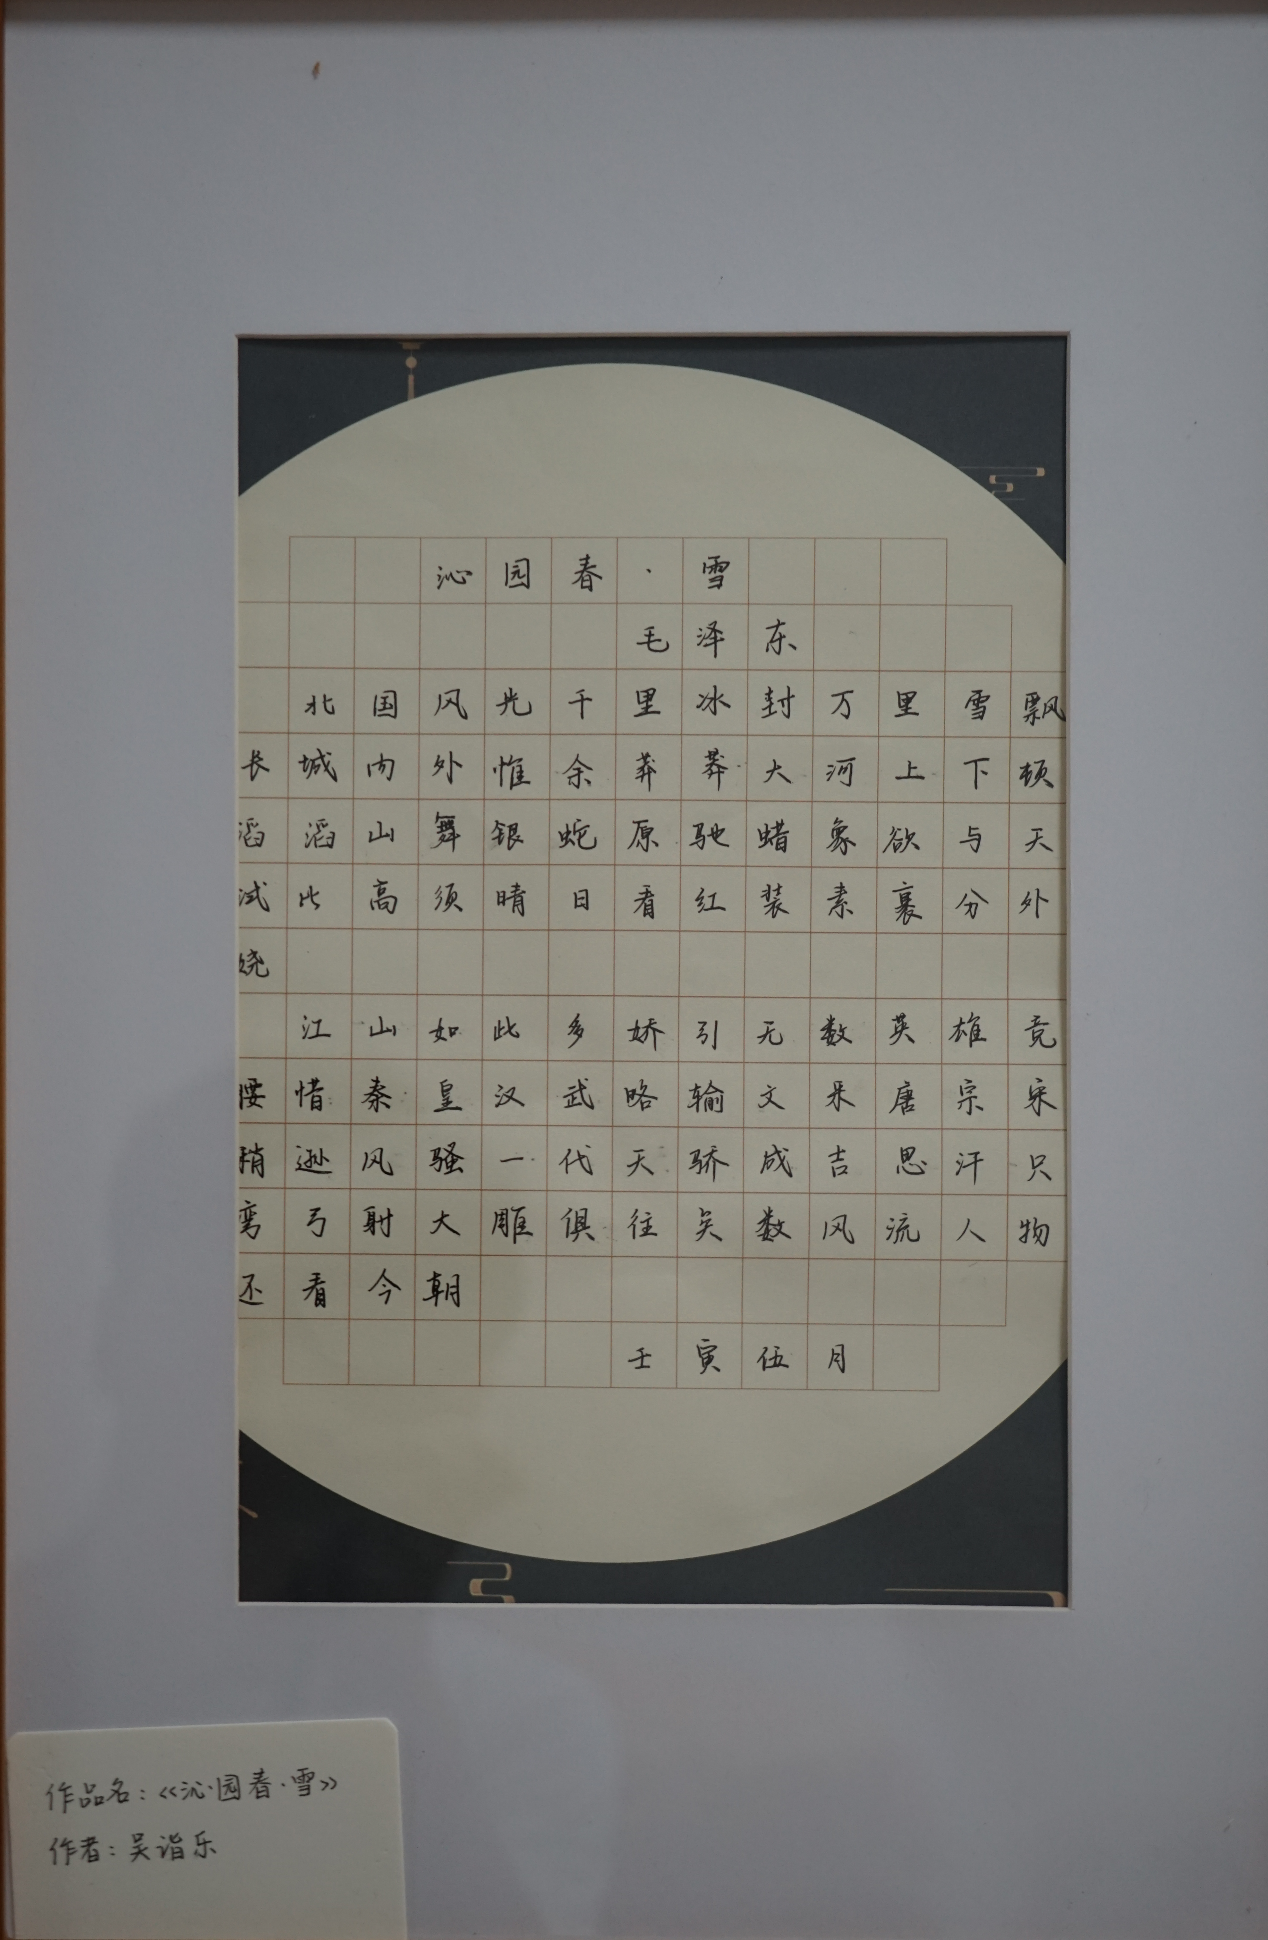 沁园春·雪
毛泽东
北国风光千里冰封万里雪飘
长城内外惟余莽莽大河上下顿
滔滔山舞银蛇原驰蜡象欲与天
试比高须晴日看红装素裹分外
娆
江山如此多娇引无数英雄竞
腰惜秦皇汉武略输文采唐宗宋
稍逊风骚一代天骄成吉思汗只
弯弓射大雕俱往矣数风流人物
还看今朝
壬寅伍月
作品名：《沁园春·雪》
作者：吴诣乐